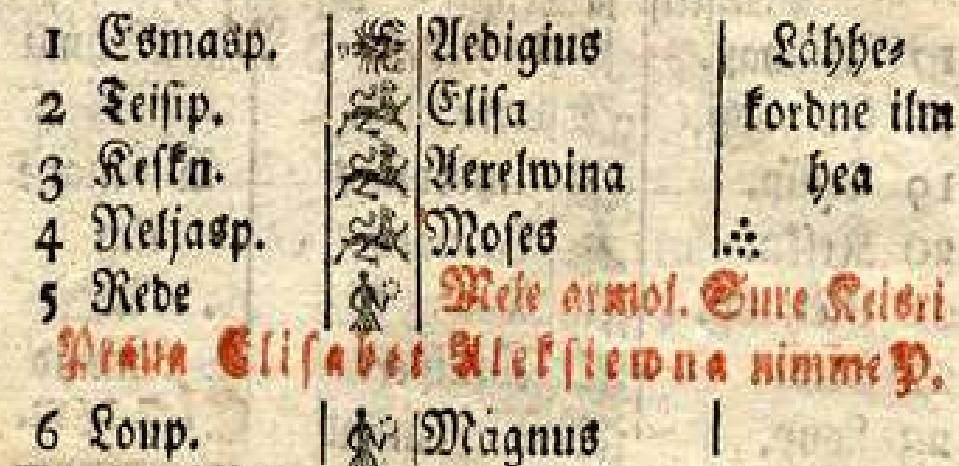 1 Esmasp. Aedigius Lähhe⸗
2 Teisip. Elisa kordne ilm
3 Keskn. Aerelwina hea
4 Neljasp. Moses
5 Rede Meie armol. Sure Keisri
Praua Elisabet Aleksiewna nimme P.
6 Loup. Mágnus